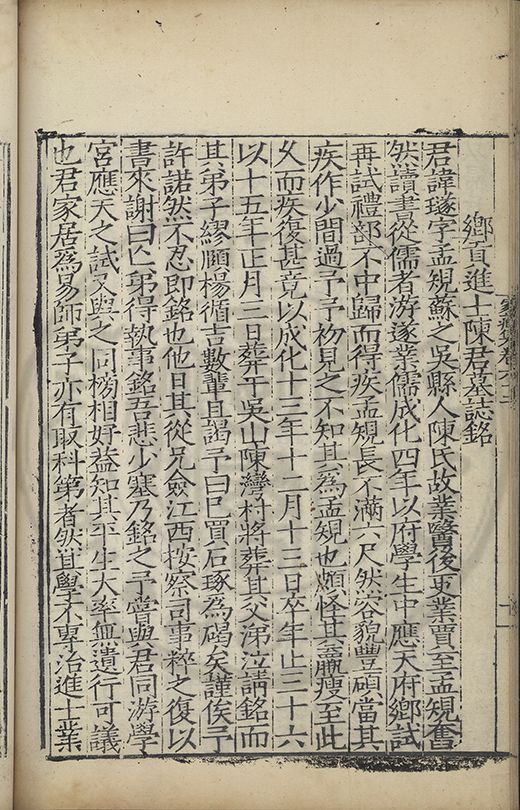 鄉貢進士陳君墓誌銘
君諱璲字孟規蘇之吳縣人陳氏故業醫後更業賈至孟規奮
然讀書從儒者游遂業儒成化四年以府學生中應天府鄉試
再試禮部不中歸而得疾孟規長不滿六尺然容貌豐碩當其
疾作少間過予予初見之不知其為孟規也頗怪其羸瘦至此
久而疾復甚竟以成化十三年十二月十三日卒年止三十六
以十五年正月三日葬于吳山陳灣村將葬其父涕泣請銘而
其弟子繆願楊循吉數輩且謁予曰已買石琢為碣矣謹俟予
許諾然不忍即銘也他日其從兄僉江西按察司事粹之復以
書來謝曰亡弟得執事銘吾悲少塞乃銘之予嘗與君同游學
宮應天之試又與之同榜相好益知其平生大率無遺行可議
也君家居為易師弟子亦有取科第者然其學不專治進士業